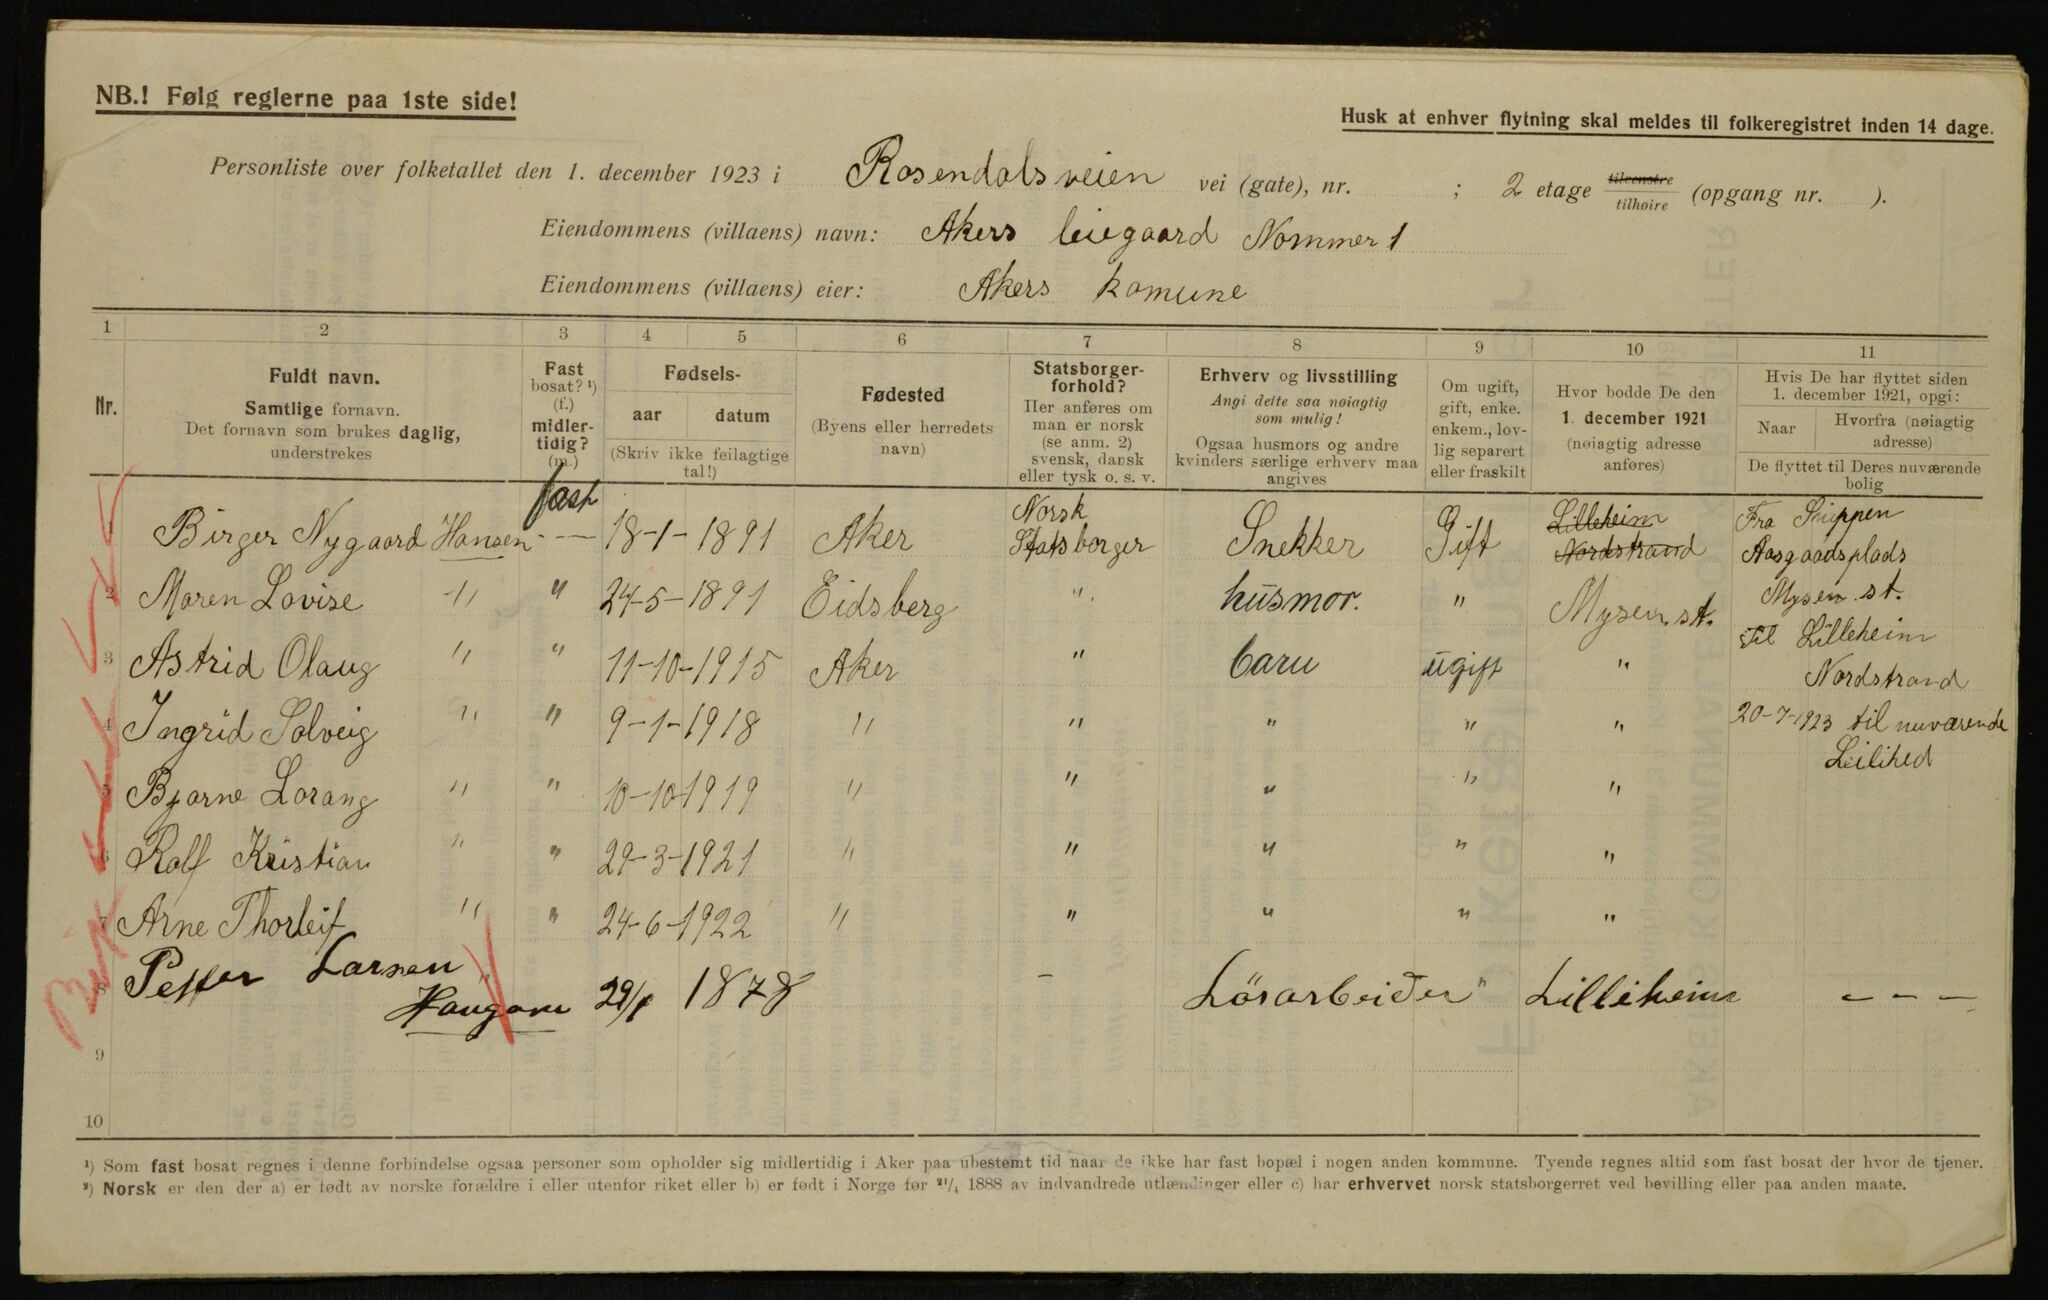 NB.! Følg reglerne paa 1ste side!
Husk at enhver flytning skal meldes til folkeregistret inden 14 dage.
Personliste over folketallet den 1. december 1923 i Rosendalsveien vei (gate), nr. ; 2 etage tilvenstre tilhøire (opgang nr. ).
Eiendommens (villaens) navn: Akers leiegaard Nommer 1
Eiendommens (villaens) eier: Akers komune
1 2 3 4 5 6 7 8 9 10 11
Nr.
Fuldt navn.
Samtlige fornavn.
Det fornavn som brukes daglig,
understrekes
Fast
bosat? ¹)
(f.)
midler-
tidig?
(m.)
Fødsels-
aar datum
(Skriv ikke feilagtige
tal!)
Fødested
(Byens eller herredets
navn)
Statsborger-
forhold?
Her anføres om
man er norsk
(se anm. 2)
svensk, dansk
eller tysk o. s. v.
Erhverv og livsstilling
Angi dette saa nøiagtig
som mulig!
Ogsaa husmors og andre
kvinders særlige erhverv maa
angives
Om ugift,
gift, enke.
enkem., lov-
lig separert
eller fraskilt
Hvor bodde De den
1. december 1921
(nøiagtig adresse
anføres)
Hvis De har flyttet siden
1. december 1921, opgi:
Naar Hvorfra (nøiagtig
adresse)
De flyttet til Deres nuværende
bolig
1 Birger Nygaard Hansen fast - — 18-1- 1891 Aker Norsk Statsborger Snekker Gift Lilleheim Nordstrand Fra Snippen
Aasgaardsplads
2 Maren Lovise " " 24-5-1891 Eidsberg " husmor. " Mysen st. Mysen st.
til Lilleheim
3 Astrid Olaug " " 11-10-1915 Aker " barn ugift " Nordstrand
4 Ingrid Solveig " " 9-1-1918 " " " " " 20-7-1923 til nuværende
Leilihed
5 Bjarne Lorang " " 10-10-1919 " " " " "
6 Rolf Kristian " " 29-3-1921 " " " " "
7 Arne Thorleif " " 24-6-1922 " " " " "
8 Petter Larsen " Haugom 29/1 1878 – Lösarbeider " Lilliheim - - -
9
10
¹) Som fast bosat regnes i denne forbindelse ogsaa personer som opholder sig midlertidig i Aker paa ubestemt tid naar de ikke har fast bopæl i nogen anden kommune. Tyende regnes altid som fast bosat der hvor de tjener.
²) Norsk er den der a) er født av norske forældre i eller utenfor riket eller b) er født i Norge før ²¹/₄ 1888 av indvandrede utlændinger eller c) har erhvervet norsk statsborgerret ved bevilling eller paa anden maate.